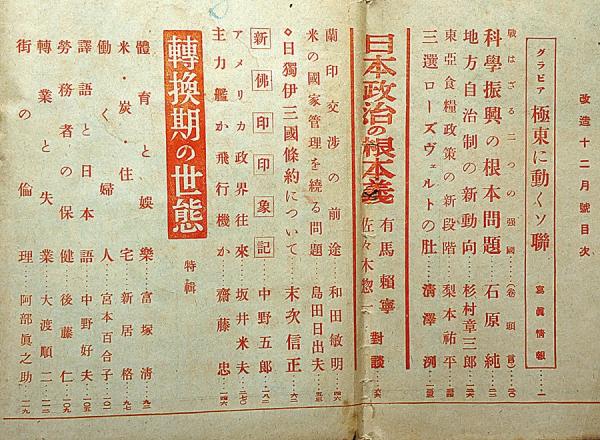 改造十二月號目次
グラビア 極東に動くソ聯 寫眞情報…一
戰はざる二つの强國…(卷頭言)…
科學振興の根本問題…石原純…
地方自治制の新動向…杉村章三郎…
東亞食糧政策の新段階…梨本祐平…
三選ローズヴェルトの肚…淸澤洌…
日本政治の根本義 有馬賴寧 佐々木惣一 對談…
蘭印交涉の前途…和田敏明…
米の國家管理を繞る問題…島田日出夫…
◇日獨伊三國條約について…末次信正…
新佛印印象記…中野五郎…
アメリカ政界往來…坂井米夫…
主力艦か飛行機か…齋藤忠…
轉換期の世態 特輯
體育と娛樂…富塚淸…九二
米・炭・住宅…新居格…九七
働く婦人…宮本百合子…
譯語と日本語…中野好夫…一〇五
勞務者の保健…後藤仁…一〇九
轉業と失業…大渡順二…
街の倫理…阿部眞之助…二九